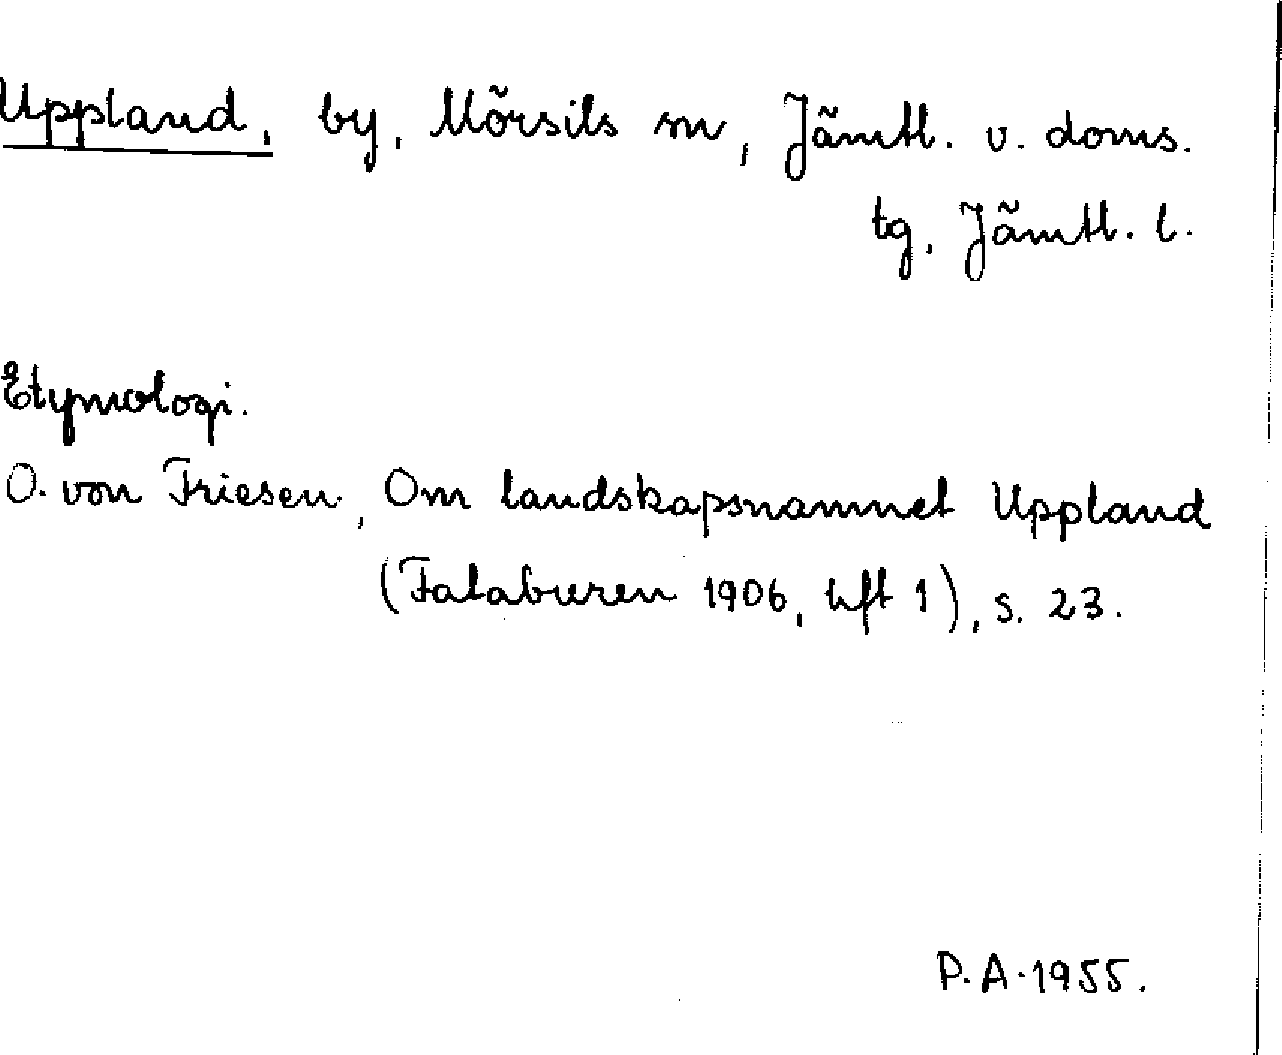 Uppland, by, Mörsils sn, Jämtl. v. doms.
tg, Jämtl. l.
Etymologi.
O. von Friesen, Om landskapsnamnet Uppland
(Fataburen 1906, hft 1), s. 23.
P. A. 1955.